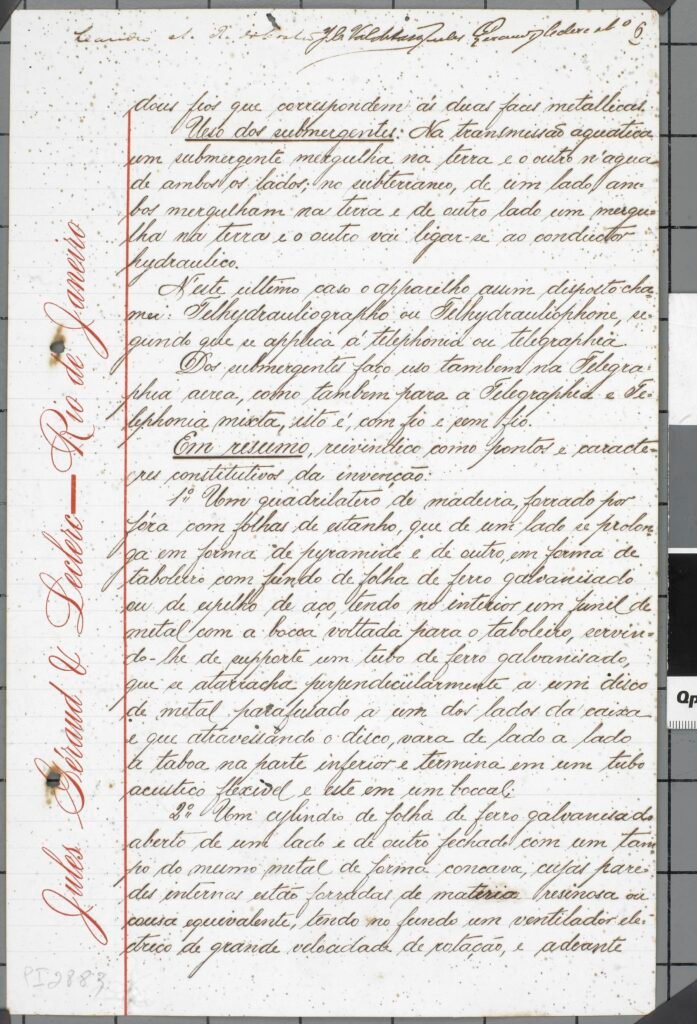 J. C. Valdetaro Jules Géraud, Leclerc & Cº 6
dous fios que correspondem ás duas faces metallicas.
Uso dos submergentes: Na transmissão aquatica
um submergente mergulha na terra e o outro n'agua
de ambos os lados; no subterraneo, de um lado am-
bos mergulham na terra e de outro lado um mergu-
lha na terra e o outro vai ligar-se ao conductor
hydraulico.
Neste ultimo caso o apparelho assim disposto cha-
mei: Telhydrauliographo ou Telhydrauliophone, se-
gundo que se applica á telephonia ou telegraphia
Dos submergentes faço uso tambem na Telegra-
phia aerea, como tambem para a Telegraphia e Te-
lephonia mixta, isto é, com fio e sem fio.
Em resumo, reivindico como pontos e caracte-
res constitutivos da invenção:
1º Um quadrilatero de madeira, forrado por
fóra com folhas de estanho, que de um lado se prolon-
ga em forma de pyramide e de outro, em forma de
taboleiro com fundo de folha de ferro galvanisado
ou de espelho de aço, tendo no interior um funil de
metal com a bocca voltada para o taboleiro, servin-
do-lhe de supporte um tubo de ferro galvanisado,
que se atarracha perpendicularmente a um disco
de metal parafusado a um dos lados da caixa
e que atravessando o disco, vara de lado a lado
a taboa na parte inferior e termina em um tubo
acustico flexivel e este em um boccal;
2º Um cylindro de folha de ferro galvanisado
aberto de um lado e de outro fechado com um tam-
po do mesmo metal de forma concava, cujas pare-
des internas estão forradas de materia resinosa ou
cousa equivalente, tendo no fundo um ventilador ele-
ctrico de grande velocidade de rotação, e adeante
Jules Géraud & Leclerc — Rio de Janeiro
PI2883